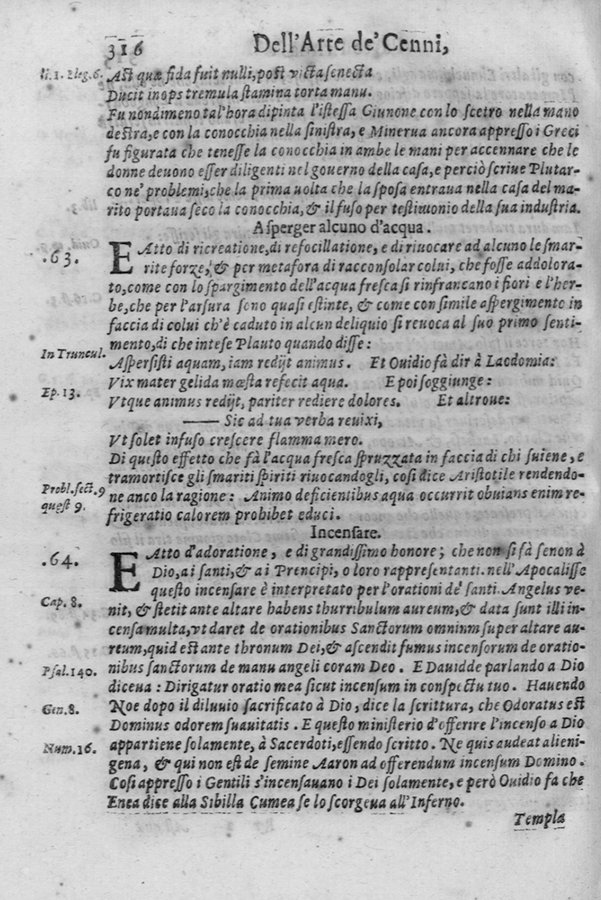 316 Dell'Arte de' Cenni,
li. 1. Eleg. 6. Ast quæ fida fuit nulli, post victa senecta
Ducit inops tremula stamina torta manu.
Fu nondimeno tal'hora dipinta l'istessa Giunone con lo scetro nella mano
destra, e con la conocchia nella sinistra, e Minerua ancora appresso i Greci
fu figurata che tenesse la conocchia in ambe le mani per accennare che le
donne deuono esser diligenti nel gouerno della casa, e perciò scriue Plutar-
co ne' problemi, che la prima uolta che la sposa entraua nella casa del ma-
rito portaua seco la conocchia, & il fuso per testimonio della sua industria.
Asperger alcuno d'acqua.
.63. E Atto di ricreatione, di refocillatione, e di riuocare ad alcuno le smar-
rite forze, & per metafora di racconsolar colui, che fosse addolora-
to, come con lo spargimento dell'acqua fresca si rinfrancano i fiori e l'her-
be, che per l'arsura sono quasi estinte, & come con simile aspergimento in
faccia di colui ch'è caduto in alcun deliquio si reuoca al suo primo senti-
mento, di che intese Plauto quando disse:
In Truncul. Aspersisti aquam, iam redijt animus. Et Ouidio fà dir à Laodomia:
Ep. 13. Vix mater gelida mæsta refecit aqua. E poi soggiunge:
Vtque animus redijt, pariter rediere dolores. Et altroue:
—— Sic ad tua verba reuixi,
Vt solet infuso crescere flamma mero.
Di questo effetto che fà l'acqua fresca spruzzata in faccia di chi suiene, e
tramortisce gli smariti spiriti riuocandogli, cosi dice Aristotile rendendo-
Probl. sect. 9 quest 9. ne anco la ragione: Animo deficientibus aqua occurrit obuians enim re-
frigeratio calorem prohibet educi.
Incensare.
.64. E Atto d'adoratione, e di grandissimo honore; che non si fà se non à
Dio, ai santi, & a i Principi, o loro rappresentanti. nell'Apocalisse
questo incensare è interpretato per l'orationi de' santi. Angelus ve-
Cap. 8. nit, & stetit ante altare habens thurribulum aureum, & data sunt illi in-
censa multa, vt daret de orationibus Sanctorum omninm super altare au-
reum, quid est ante thronum Dei, & ascendit fumus incensorum de oratio-
Psal. 140. nibus sanctorum de manu angeli coram Deo. E Dauidde parlando a Dio
diceua: Dirigatur oratio mea sicut incensum in conspectu tuo. Hauendo
Gen. 8. Noe dopo il diluuio sacrificato à Dio, dice la scrittura, che Odoratus est
Dominus odorem suauitatis. E questo ministerio d'offerire l'incenso a Dio
Num. 16. appartiene solamente, à Sacerdoti, essendo scritto. Ne quis audeat alieni-
gena, & qui non est de semine Aaron ad offerendum incensum Domino.
Cosi appresso i Gentili s'incensauano i Dei solamente, e però Ouidio fa che
Enea dice alla Sibilla Cumea se lo scorgeua all'Inferno.
Templa